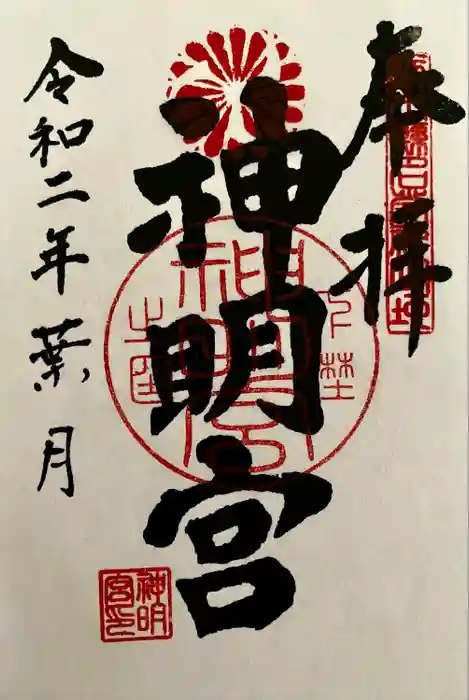 奉拝
神明宮
令和二年葉月
神明宮
神明宮印